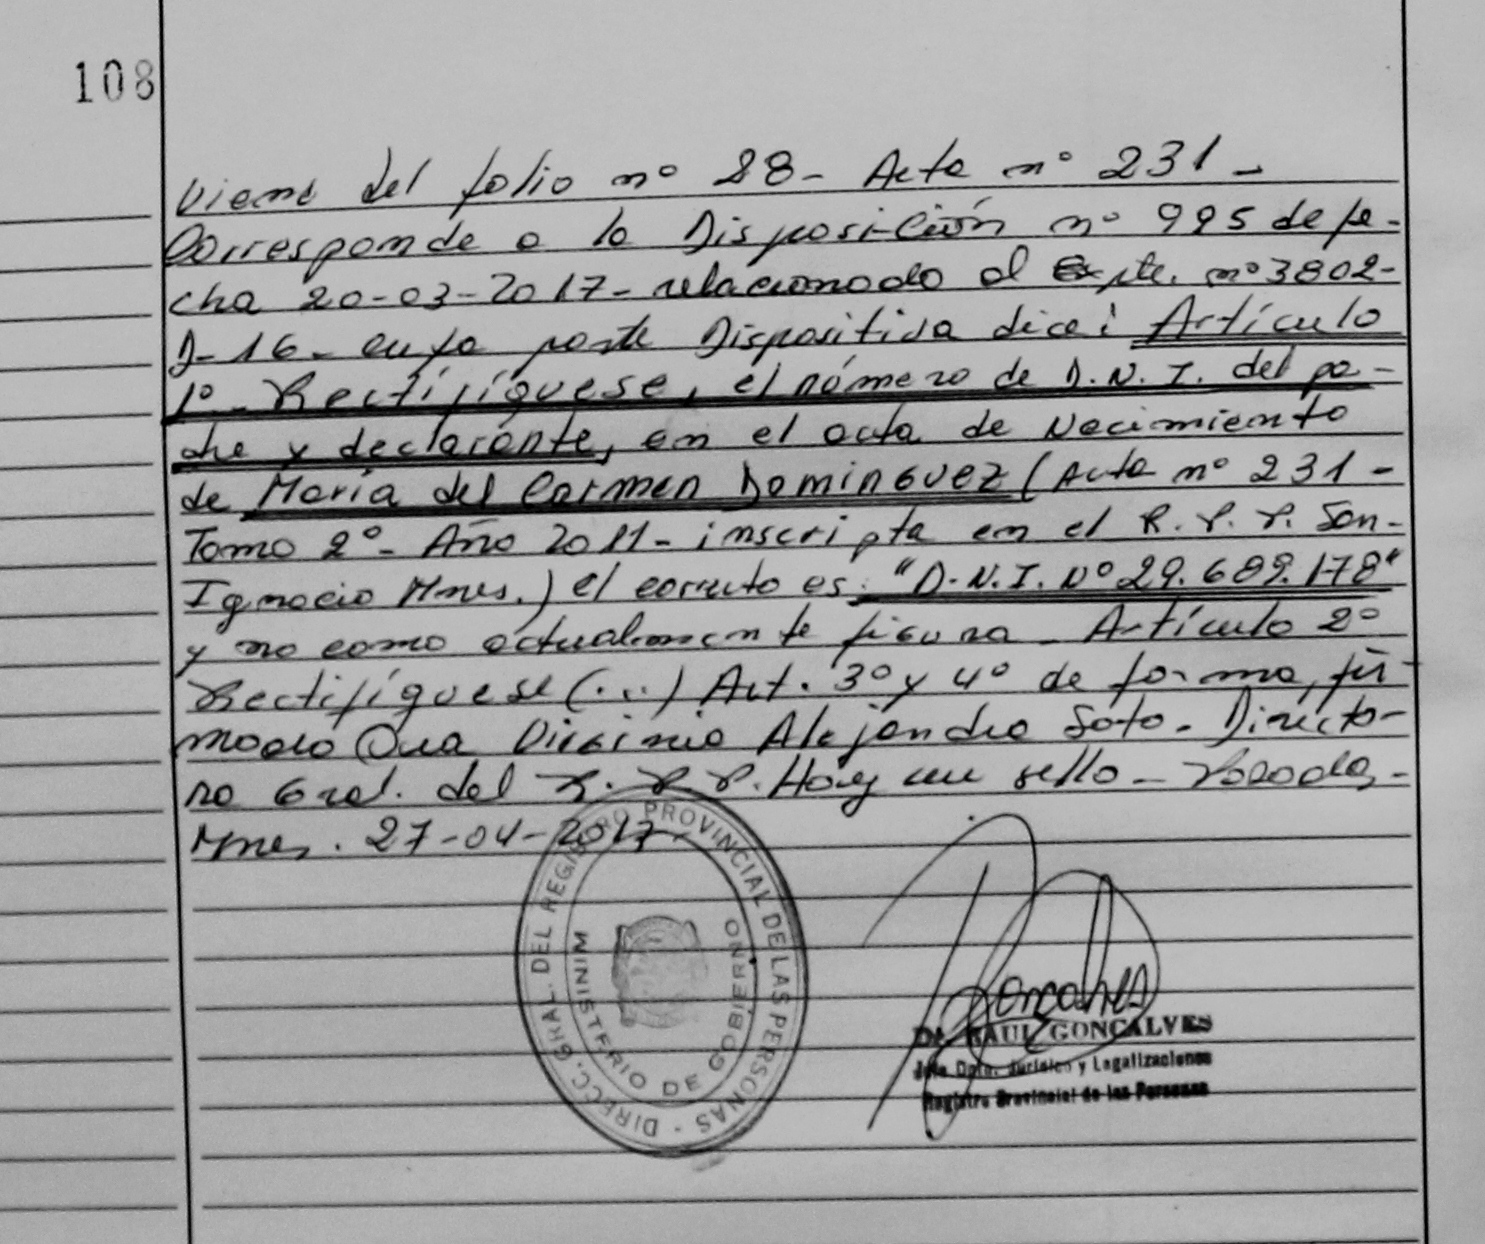 108
Viene del folio nº 28- Acta nº 231-
Corresponde a la Disposición nº 995 de fe-
cha 20-03-2017- relacionado al Expte. nº 3802-
D-16- cuya parte Dispositiva dice: Artículo
1º- Rectifíquese, el número de D.N.I. del pa-
dre y declarante, en el acta de Nacimiento
de María del Carmen Dominguez (Acta nº 231-
Tomo 2º- Año 2011- inscripta en el R.P.P. San-
Ignacio Mnes.) el correcto es: "D.N.I. Nº 29.689.178"
y no como actualmente figura- Artículo 2º
Rectifíquese (...) Art. 3º y 4º de forma, fir-
mado Dra Virginia Alejandra Soto- Directo-
ra Gral. del R.P.P. Hay un sello- Posadas,-
Mnes. 27-04-2017-
DIRECC. GRAL. DEL REGISTRO PROVINCIAL DE LAS PERSONAS -
MINISTERIO DE GOBIERNO
Goncalves
Dr. RAUL GONCALVES
Jefe Dpto. Jurídico y Legalizaciones
Registro Provincial de las Personas